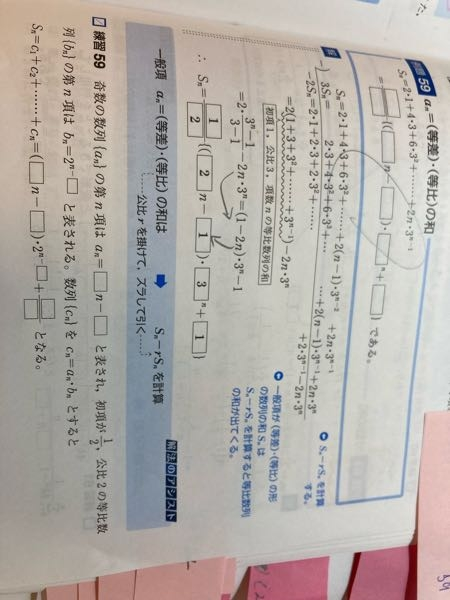 例題 59 aₙ=(等差)・(等比)の和
Sₙ=2・1+4・3+6・3²+……+2n・3ⁿ⁻¹
=□/□{(□n−□)・□ⁿ+□} である。
解
Sₙ=2・1+4・3+6・3²+……+2(n−1)・3ⁿ⁻²+2n・3ⁿ⁻¹
−) 3Sₙ= 2・3+4・3²+6・3³+… …+2(n−1)・3ⁿ⁻¹+2n・3ⁿ
−2Sₙ=2・1+2・3+2・3²+…… +2・3ⁿ⁻¹−2n・3ⁿ
=2(1+3+3²+……+3ⁿ⁻¹)−2n・3ⁿ
初項1, 公比3, 項数nの等比数列の和
=2・(3ⁿ−1)/(3−1)−2n・3ⁿ=(1−2n)・3ⁿ−1
∴ Sₙ=1/2{(2n−1)・3ⁿ+1}
Sₙ−rSₙを計算する。
一般項が(等差)・(等比)の形
の数列の和Sₙは
Sₙ−rSₙを計算すると等比数列
の和が出てくる。
解法のアシスト
一般項 aₙ=(等差)・(等比)の和は ➡ Sₙ−rSₙを計算
……公比rを掛けて、ズラして引く……
練習 59 奇数の数列{aₙ}の第n項は aₙ=□n−□ と表され、初項が1/2, 公比2の等比数
列{bₙ}の第n項は bₙ=2ⁿ⁻□ と表される。数列{cₙ}を cₙ=aₙ・bₙ とすると
Sₙ=c₁+c₂+……+cₙ=(□n−□)・2ⁿ⁻□+□/□ となる。